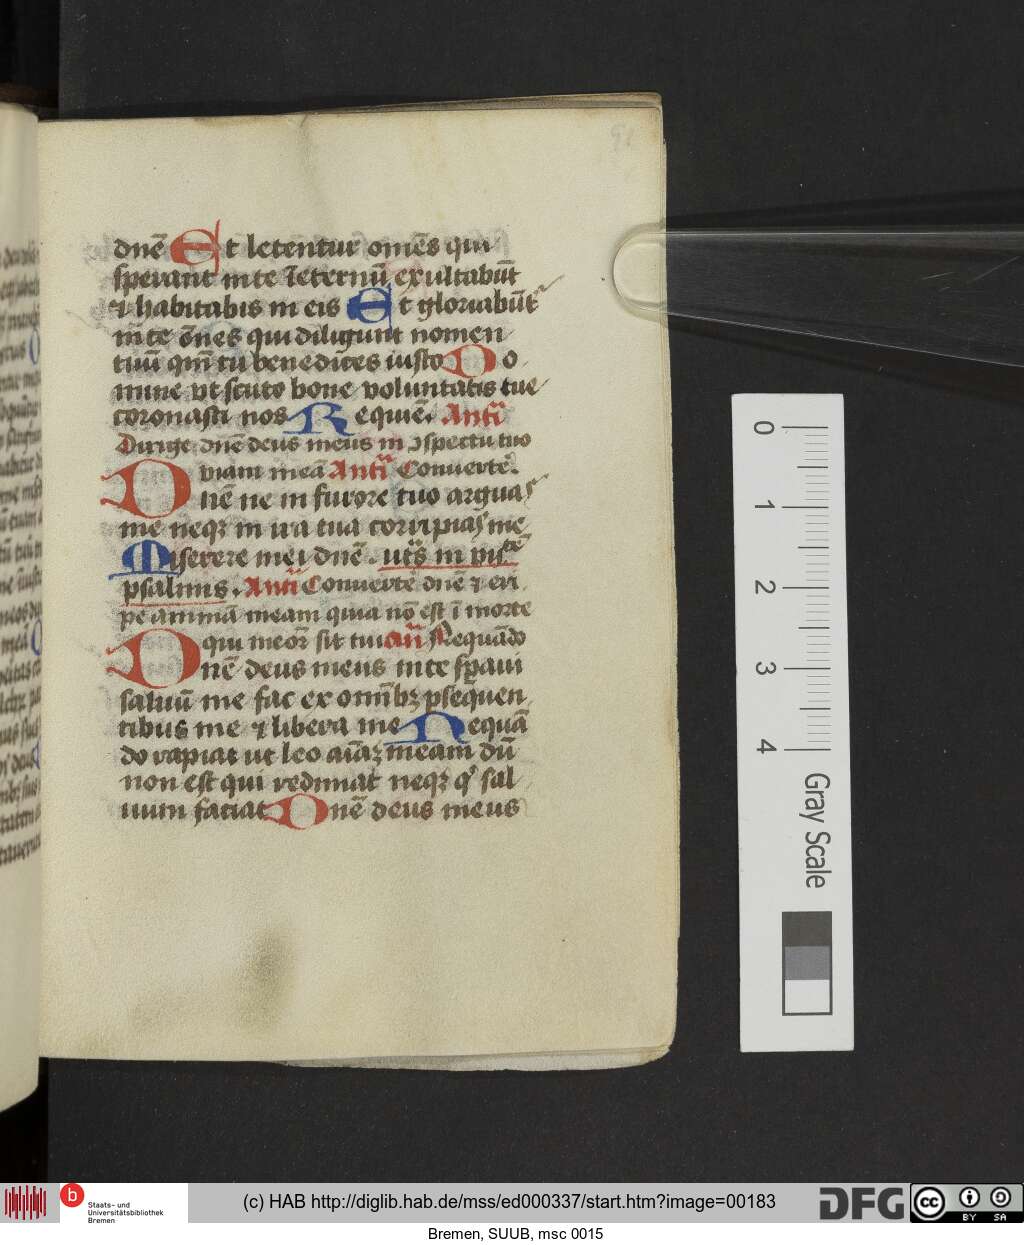 91
dnē Et letentur om̄es qui
sperant in te īeternū exultabūt
⁊ habitabis in eis Et gloriabūt᷑
in te ōnes qui diligunt nomen
tuū qm̄ tu benedices iusto Do
mine vt scuto bone voluntatis tue
coronasti nos Requiē. Antī
Dirige dnē deus meus in ɔspectu tuo
viam meā Antī Conuerte.
Dnē ne in furore tuo arguas
me neqꝫ in ira tua corripias me
Miserere mei dnē. utꝫ in vii te
psalmis. Antī Conuerte dnē ⁊ eri
pe animā meam quia nō est ī morte
qui meōr sit tui an̄ Nequādo
Dnē deus meus in te sꝑaui
saluū me fac ex omībꝫ ꝑsequen
tibus me ⁊ libera me Nequā
do rapiat ut leo aīaꝫ meam dū
non est qui redimat neqꝫ qͥ sal
uum faciat Dnē deus meus
0
1
2
3
4
Gray Scale
b Staats- und
Universitätsbibliothek
Bremen
(c) HAB http://diglib.hab.de/mss/ed000337/start.htm?image=00183
DFG
cc BY SA
Bremen, SUUB, msc 0015